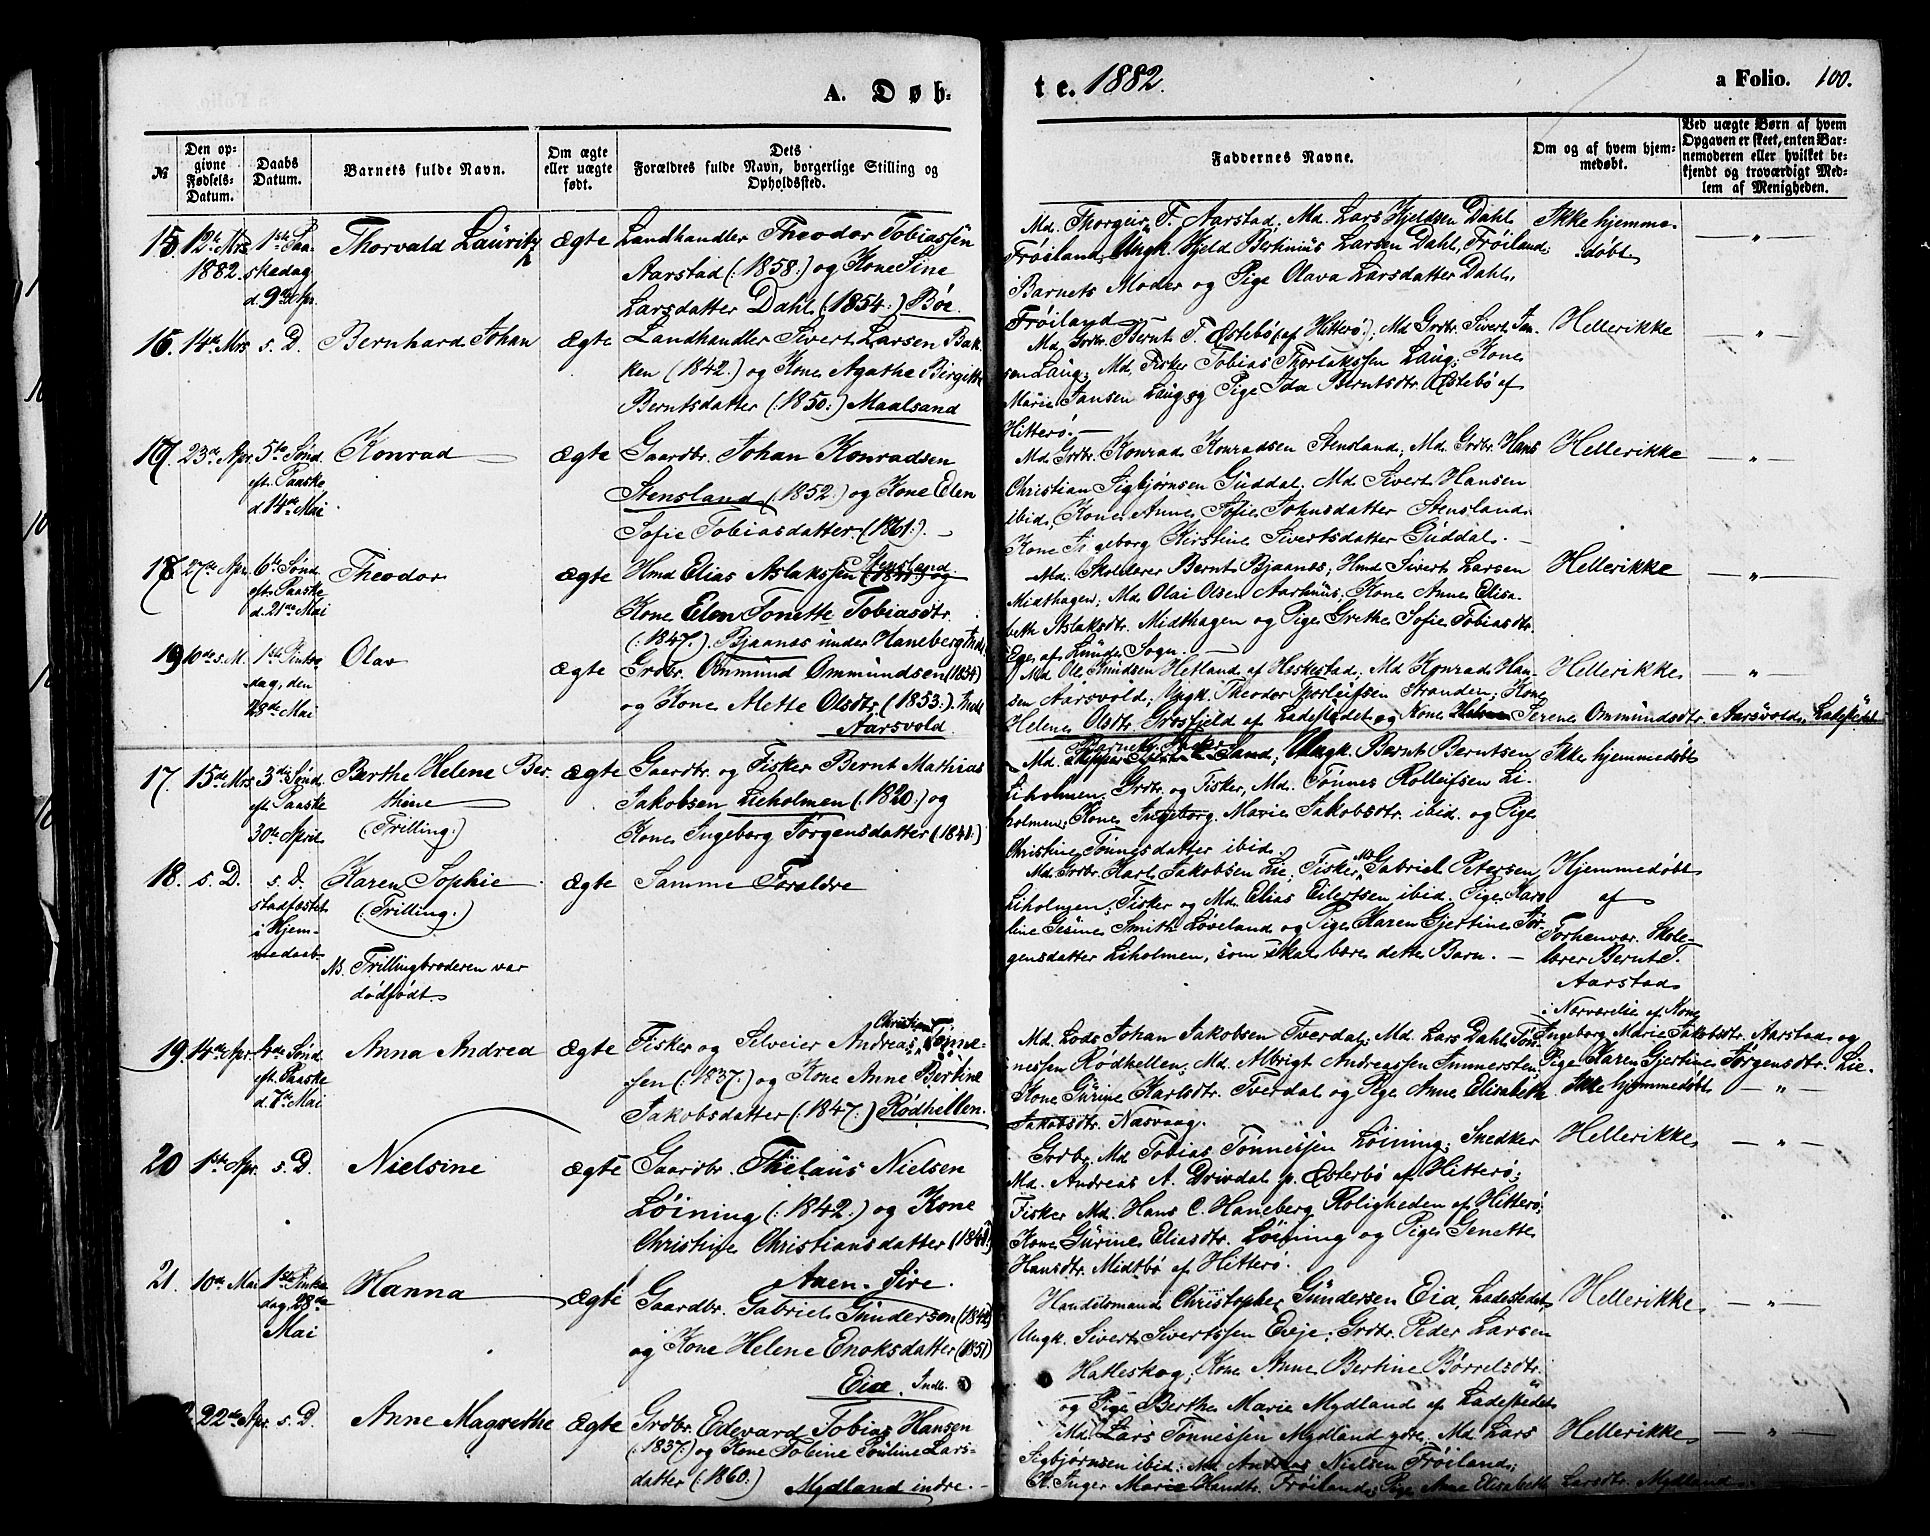 A. Døb-
te. 1882.
a Folio. 100.
№
Den op-
givne
Fødsels-
Datum.
Daabs
Datum.
Barnets fulde Navn.
Om ægte
eller uægte
født.
Dets
Forældres fulde Navn, borgerlige Stilling og
Opholdssted.
Faddernes Navne.
Om og af hvem hjem-
medøbt.
Ved uægte Børn af hvem
Opgaven er skeet, enten Bar-
nemoderen eller hvilket be-
kjendt og troværdigt Med-
lem af Menigheden.
15. 12te Mrs
1882.
1ste Paa-
skedag
d. 9de Apr.
Thorvald Lauritz
ægte
Landhandler Theodor Tobiassen
Aarstad (: 1858 :) og Kone Sine
Larsdatter Dahl (: 1854 :) Bøe.
Md. Thorgeir T. Aarstad; Md. Lars Kjeldsen Dahl
Frøiland, Ungk. Kjeld Bertinius Larsen Dahl, Frøiland,
Barnets Moder og Pige Olava Larsdatter Dahl,
Frøiland
Ikke hjemme-
døbt
— " —
16. 14de Mrs
s. D.
Bernhard Johan
ægte
Landhandler Sivert Larsen Bak-
ken (1842 :) og Kone Agathe Bergitte
Berntsdatter (: 1850 :) Maalsand
Md. Grdbr. Bernt T. Østebø (af Hitterø); Md Grdbr. Sivert Jan-
sen Laug; Md. Fisker Tobias Thorlakssen Laug; Kone
Marie Jansen Laug og Pige Ida Berntsdtr. Østebø af
Hitterø. —
Hellerikke
— " —
17. 23de Apr.
5te Sønd.
eft. Paaske
d. 14de Mai
Konrad
ægte
Gaardbr. Johan Konradsen
Stensland (: 1852 :) og Kone Elen
Sofie Tobiasdatter (1861 :). —
Md Grdbr. Konrad Konradsen Stensland; Md. Grdbr. Hans
Christian Sigbjørnsen Guddal, Md Sivert Hansen
ibid, Kone Anne Sofie Johnsdatter Stensland
Kone Ingeborg Kirstine Sivertsdatter Guddal. —
Hellerikke
— " —
18. 27de Apr.
6te Sønd.
eft. Paaske
d. 21de Mai
Theodor
ægte
Stensland
Hmd Elias Aslakssen (1841) og
Kone Elen Tonette Tobiasdtr.
(: 1847 :) Bjaanes under Haneberg
Md. Skolelærer Bernt Bjaanes, Hmd Sivert Larsen
Midthagen; Md Olai Olsen Aarhuus; Kone Anne Elisa-
beth Aslaksdtr. Midthagen og Pige Grethe Sofie Tobiasdtr.
Ege af Lunde Sogn. —
Hellerikke
— " —
19 10de s. M.
1ste Pintse
dag, den
28de Mai
Olav
ægte
Grdbr. Ommund Ommundsen (1854)
og Kone Mette Olsdtr. (1853 :)
Aarsvold
Md Ole Knudsen Hetland af Heskestad; Md Konrad Han-
sen Aarsvold; Ungk. Theodor Thorleifsen Stranden; Kone
Helene Olsdtr. Grosfjeld af Ladestedet og Kone Serene Ommundsdtr. Aarsvold, Ladestedet
Hellerikke
— " —
17. 15de Mrs.
3die Sønd.
eft. Paaske
30te April
Berthe Helene Ber-
thine
(Trilling.)
ægte
Gaardbr. og Fisker Bernt Mathias
Jakobsen Lieholmen (: 1820 :) og
Kone Ingeborg Jørgensdatter (1841 :)
Md. Sand; Ungk. Bernt Berntsen
Liholmen, Grdbr. og Fisker, Md. Tønnes Rolleifsen Li-
holmen; Kone Ingeborg Marie Jakobsdtr. ibid. og Pige
Christine Tønnesdatter ibid.
Ikke hjemmedøbt
18. s. D.
s. D.
stadfæstet
i Hjem-
medaab
Karen Sophie
(Trilling.)
NB. Trillingbroderen var
dødfødt.
ægte
Samme Forældre
Md. Grdbr. Karl Jakobsen Lie; Fisker, Md Gabriel Petersen
Liholmen; Fisker og Md. Elias Eilertsen ibid. Pige Karo-
line Gesine Smith Løveland og Pige Karen Gjertine Jør-
gensdatter Liholmen, som skal bære dette Barn. —
Hjemmedøbt
af
Forhenvær. Skole-
lærer Bernt T.
Aarstad
i Nærværelse af Kone
Ingeborg Marie Jakobsdtr. Aarstad og
Pige Karen Gjertine Jørgensdtr. Lie.
19. 14de Apr.
4de Sønd.
eft. Paaske
d. 7de Mai
Anna Andrea
ægte
Christian
Fisker og Selveier Andreas Tønne-
sen (: 1837 :) og Kone Anne Bertine
Jakobsdatter (: 1847 :) Rødhellen.
Md. Lods Johan Jakobsen Tverdal; Md. Lars Dahl Tøn-
nessen Rødhellen; Md. Albrigt Andreassen Immersten;
Kone Gurine Karlsdtr. Tverdal og Pige Anne Elisabeth
Jakobsdtr. Næsvaag.
Ikke hjemmedøbt
— " —
20 1ste Apr.
s. D.
Nielsine
ægte
Gaardbr. Thilaus Nielsen
Løining (: 1842 :) og Kone
Christine Christiansdatter (184
Aaen-Sire.
Grdbr. Md Tobias Tønnessen Løining; Snedker
Md. Andreas A. Drivdal p. Østerbø af Hitterø;
Fisker Md. Hans C. Haneberg Roligheden af Hitterø;
Kone Gurine Eliasdtr. Løining og Pige Genette
Hansdtr. Midtbø af Hitterø.
Hellerikke
— " —
21. 10de Mai
1ste Pintse
dag, 28de
Mai
Hanna
ægte
Gaardbr. Gabriel Gundersen (184
og Kone Helene Enoksdatter (1851)
Eia. Indb.
Handelsmand Christopher Gundersen Eia, Ladestedet
Ungk. Sivert Sivertssen Eieje; Grdbr. Peder Larsen
Hatleskog; Kone Anne Bertine Børrelsdtr.
og Pige Berthe Marie Mydland af Ladestedet
Hellerikke
— " —
22de Apr.
s. D.
Anne Magrethe
ægte
Grdbr. Edevard Tobias Hansen
(: 1837 :) og Kone Tobine Pouline Lars-
datter (: 1860 :) Mydland indre. —
Md. Lars Tønnessen Mydland ydre, Md. Lars
Sigbjørnsen ibid; Md Andreas Nielsen Frøiland;
K. Inger Marie Handtr. Frøiland; Pige Anne Elisabeth Larsdtr. Mydland
Hellerikke
— " —